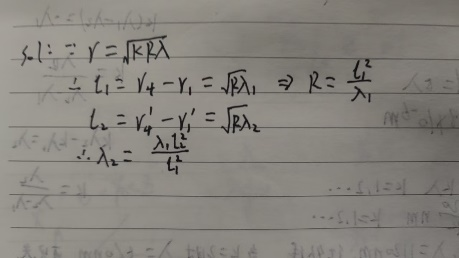 sol: ∵ r = √(kRλ)
∴ l₁ = r₄ - r₁ = √(Rλ₁) ⇒ R = l₁²/λ₁
l₂ = r₄' - r₁' = √(Rλ₂)
∴ λ₂ = λ₁l₂²/l₁²